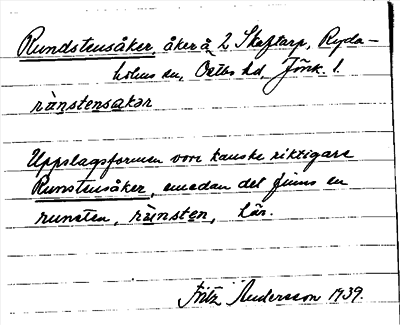 Rundstensåker, åker å 2 Skaftarp, Ryda-
holms sn, Östbo hd, Jönk. l.
rànstensakar
Uppslagsformen vore kanske riktigare
Runstensåker, emedan det finns en
runsten, rànsten, här.
Fritz Andersson 1939.